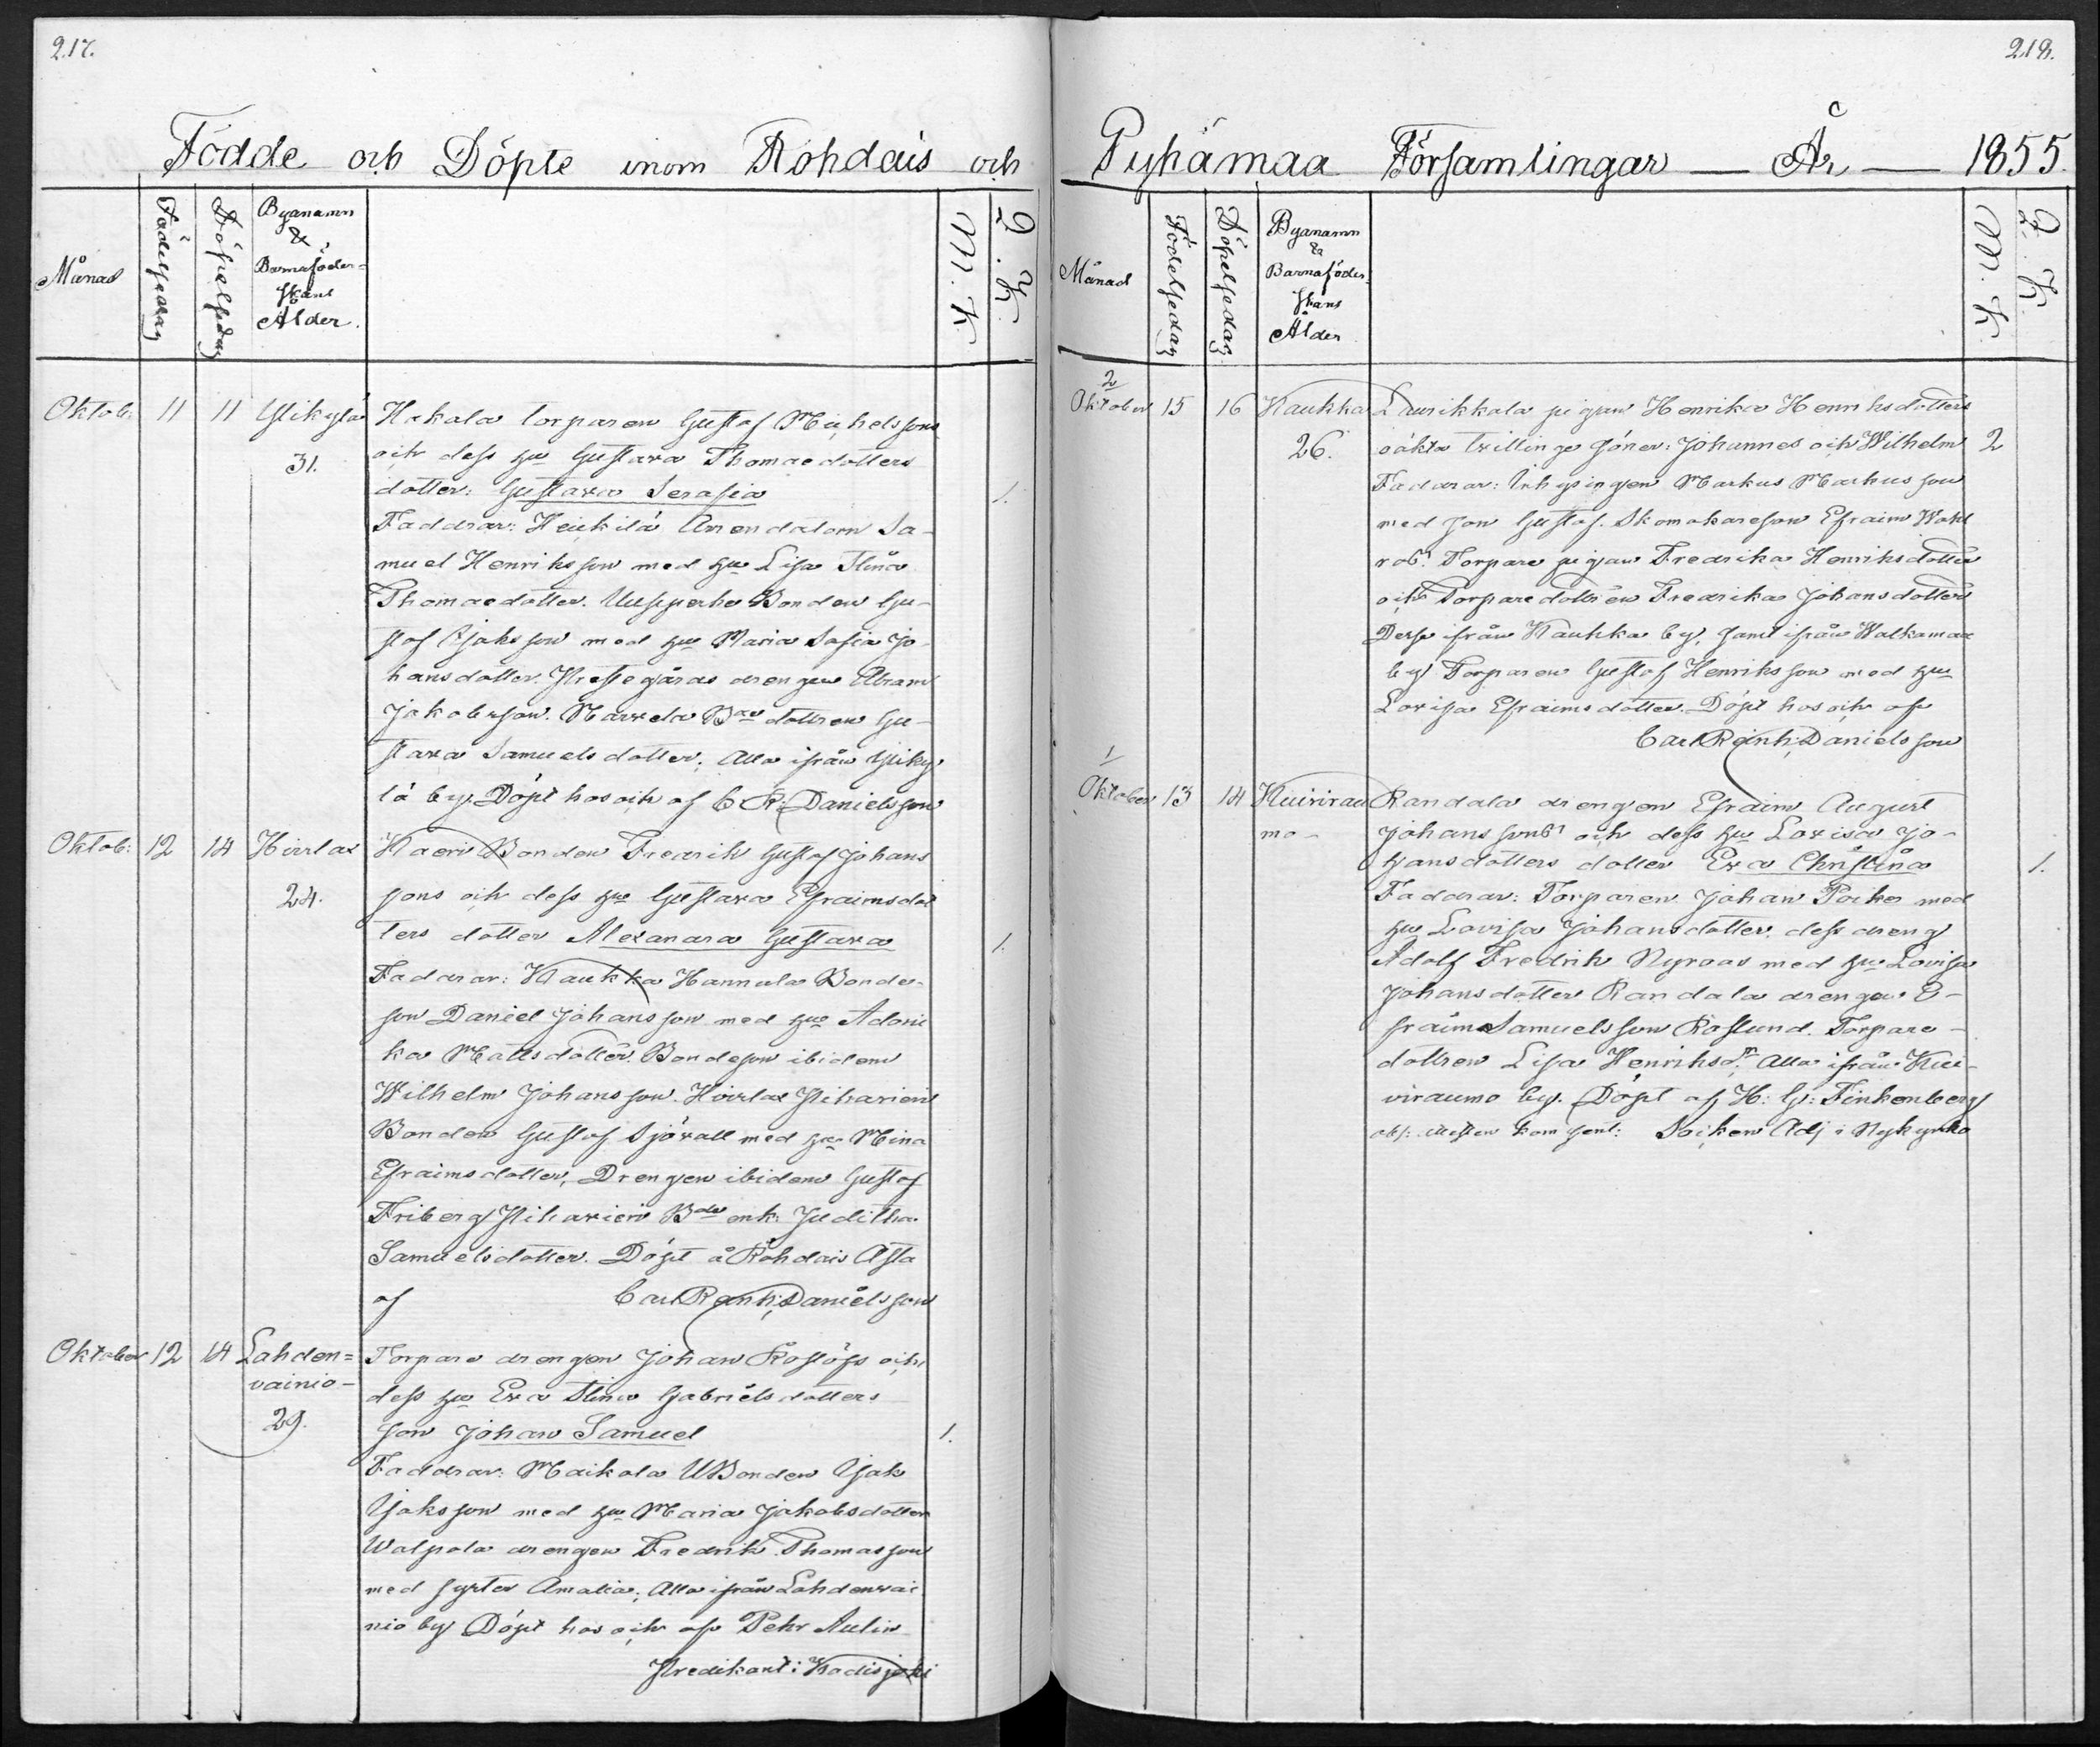 217.
Födde och Döpte inom Rohdais och
Månad
Födelsedag
Döpelsedag
Byanamn
&
Barnaföder=
skans
Ålder.
M. K.
Q. K.
Oktob: 11 11 Ylikylä Hakala torparen Gustaf Michelssons
31. och dess hu Gustava Thomaedotters
dotter: Gustava Serafia 1.
Faddrar: Heikilä Arrendatorn Sa-
muel Henriksson med hu Lisa Stina
Thomaedotter. Uusiperhe Bonden Gu-
staf Isaksson med hu Maria Sofia Jo-
hansdotter. Prestegårds drengen Abram
Jakobsson. Marvela Bde dottren Gu-
stava Samuelsdotter. Alla ifrån Yliky-
lä by. Döpt hos och af C. R. Danielsson
Oktob: 12 14 Hirslax Kaeri Bonden Fredrik Gustaf Johans
24. sons och dess hu Gustava Efraimsdot
ters dotter Alexandra Gustava 1.
Faddrar: Kaukka Hannula Bonde-
son Daniel Johansson med hu Adoni
ka Mattsdotter. Bondeson ibidem
Wilhelm Johansson. Hirslax
Bonden Gustaf Sjövall med hu Mina
Efraimsdotter, Drengen ibidem Gustaf
Friberg Bde enk: Juditha
Samuelsdotter. Döpt å Rohdais
af Carl Reinh: Danielsson
Oktober 12 14 Lahden=
vainio- Torpare drengen Johan Roslöfs och
29. dess hu Eva Stina Gabrielsdotters
son Johan Samuel 1.
Faddrar: Maikola UBonden Isak
Isaksson med hu Maria Jakobsdotter
Walpola drengen Fredrik Thomasson
med syster Amalia; Alla ifrån Lahdenvai
nio by Döpt hos och af Pehr Aulin
Predikant i Kodisjoki
218.
Pyhämaa Församlingar — År — 1855.
Månad
Födelsedag
Döpelsedag
Byanamn
&
Barnaföder-
skans
Ålder
M. K.
Q. K.
2
Oktober 15 16 Kaukka Laurikkala pigan Henrika Henriksdotters
26. oäkta tvillinge söner: Johannes och Wilhelm 2
Faddrar: Inhysingen Markus Markusson
med son Gustaf. Skomakareson Efraim Wahl
rob. Torpare pigan Fredrika Henriksdotter
och Torparedottren Fredrika Johansdotter
Desse ifrån Kaukka by, samt ifrån Walkamaa
by Torparen Gustaf Henriksson med hu
Lovisa Efraimsdotter. Döpt hos och af
Carl Reinh: Danielsson
1
Oktober 13 14 Kuivirau Randala drengen Efraim August
mo- Johanssons och dess hu Lovisa Jo-
hansdotters dotter Eva Christina 1.
Faddrar: Torparen Johan Poiko med
hu Lovisa Johansdotter, dess dreng
Adolf Fredrik Nyroos med hu Lovisa
Johansdotter Randala drengen E-
fraim Samuelsson Roslund. Torpare-
dottren Lisa Henriksdr. Alla ifrån Kui-
viraumo by. Döpt af H: G: Finkenberg
Adj i Nykyrko